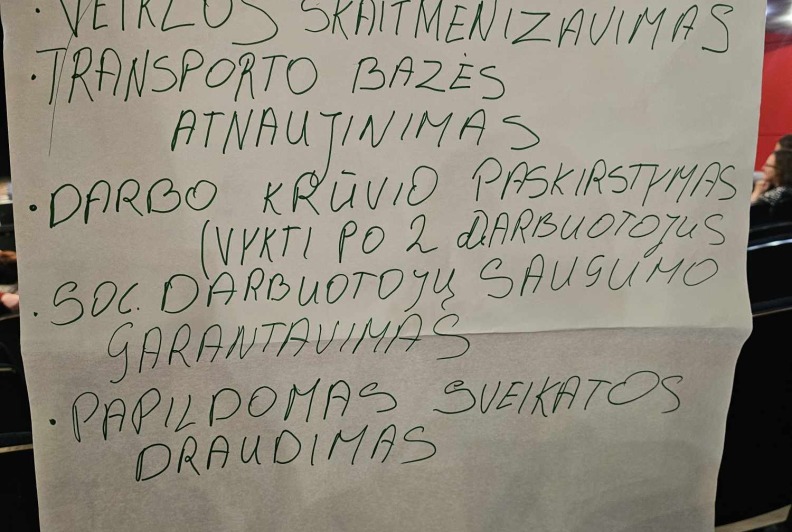 · VEIKLOS SKAITMENIZAVIMAS
· TRANSPORTO BAZĖS
ATNAUJINIMAS
· DARBO KRŪVIO PASKIRSTYMAS
(VYKTI PO 2 DARBUOTOJUS
· SOC. DARBUOTOJŲ SAUGUMO
GARANTAVIMAS
· PAPILDOMAS SVEIKATOS
DRAUDIMAS